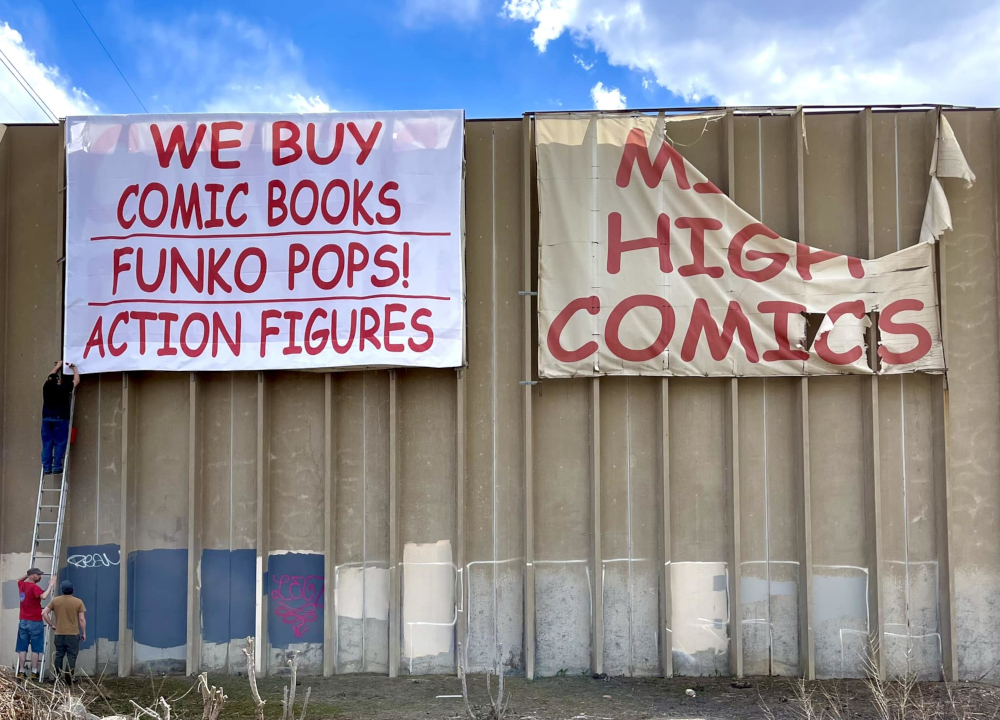 WE BUY
COMIC BOOKS
FUNKO POPS!
ACTION FIGURES
HIGH
COMICS